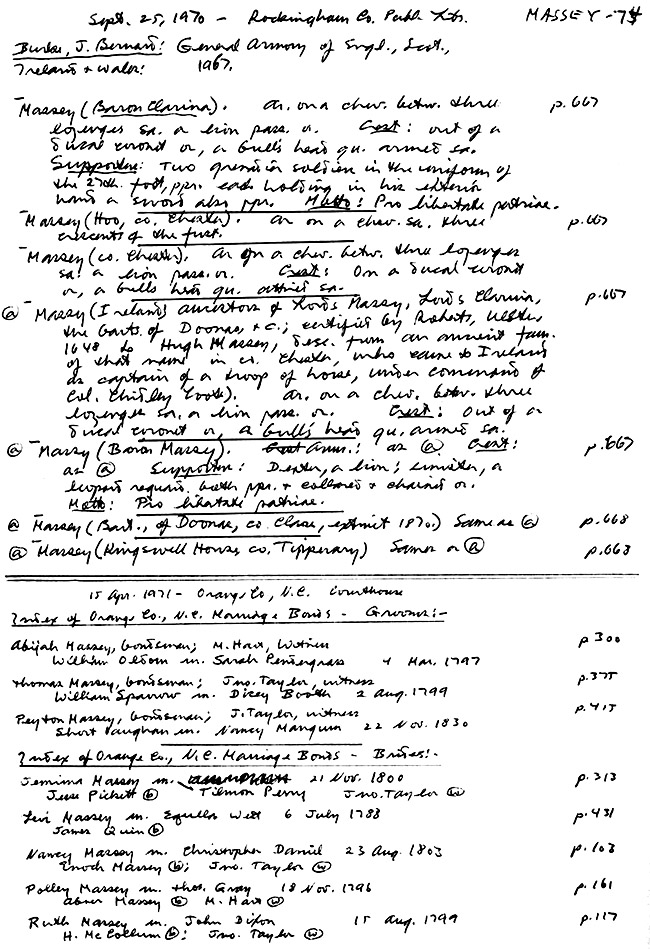 Sept. 25, 1970 - Rockingham Co. Publ. Lib. MASSEY - 74
Burke, J. Bernard: General Armory of Engl., Scot.,
Ireland & Wales: 1967.
Massey (Baron Clarina). Ar. on a chev. betw. three p. 667
lozenges sa. a lion pass. or. Crest: out of a
ducal coronet or, a bull's head gu. armed sa.
Supporters: Two grenadier soldiers in the uniform of
the 27th. foot, ppr. each holding in his exterior
hand a sword also ppr. Motto: Pro libertate patriae.
Massey (Hoo, co. Chester). Ar on a chev. sa. three p. 667
crescents of the first.
Massey (co. Chester). Ar on a chev. betw. three lozenges
sa. a lion pass. or. Crest: On a ducal coronet
or, a bulls head gu. attired sa.
(a) Massy (Ireland) ancestors of Lords Massy, Lords Clarina, p. 667
the barts. of Doonas, &c.; certified by Roberts, Ulster,
1648 to Hugh Massey, desc. from an ancient fam.
of that name in co. Chester, who came to Ireland
as captain of a troop of horse, under command of
Col. Chidley Coote). Ar. on a chev. betw. three
lozenges sa. a lion pass. or. Crest: Out of a
ducal coronet or, a bull's head gu. armed sa.
(a) Massy (Baron Massy). Arms.: as (a) Crest: p. 667
as (a) Supporters: Dexter, a lion; sinister, a
leopard reguard. both ppr. & collared & chained or.
Motto: Pro libertate patriae.
(a) Massey (Bart., of Doonas, co. Clare, extinct 1870.) Same as (a) p. 668
(a) Massey (Kingswell House, co. Tipperary) Same as (a) p. 668
15 Apr. 1971 - Orange Co., N.C. Courthouse
Index of Orange Co., N.C. Marriage Bonds - Grooms:-
Abijah Massey, bondsman; M. Hart, Witness p 300
William Oldom m. Sarah Pendergrass 4 Mar. 1797
Thomas Massey, bondsman; Jno. Taylor, witness p. 375
William Sparrow m. Dicey Booth 2 Aug. 1799
Peyton Massey, bondsman; J. Taylor, witness p. 415
Short Vaughan m. Nancy Mangum 22 Nov. 1830
Index of Orange Co., N.C. Marriage Bonds - Brides:-
Jemima Massey m. 21 Nov. 1800 p. 313
Jesse Pickett (b) Tilmon Perry Jno. Taylor (w)
Levi Massey m. Equilla West 6 July 1788 p. 431
James Quin (b)
Nancy Massey m. Christopher Daniel 23 Aug. 1803 p. 103
Enoch Massey (b); Jno. Taylor (w)
Polley Massey m. Thos. Gray 18 Nov. 1796 p. 161
Abner Massey (b) M. Hart (w)
Ruth Massey m. John Dixon 15 Aug. 1799 p. 117
H. McCollum (b); Jno. Taylor (w)